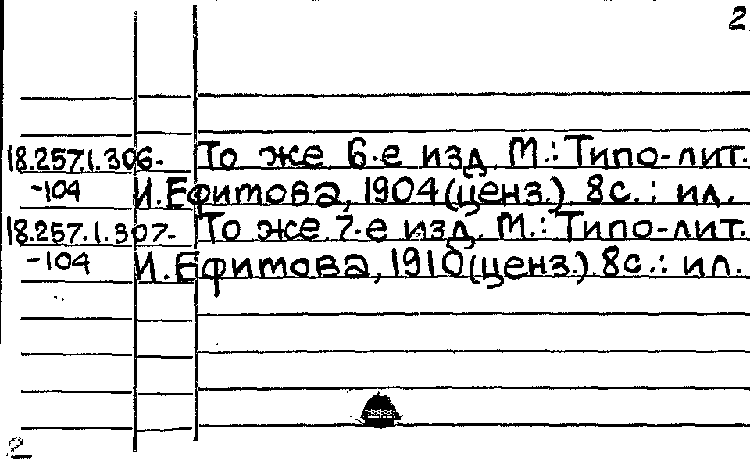 2
18.257.1.306- То же 6-е изд. М.: Типо-лит.
-104 И.Ефитова, 1904 (ценз.). 8с.: ил.
18.257.1.307- То же 7-е изд. М.: Типо-лит.
-104 И.Ефитова, 1910 (ценз.). 8с.: ил.
2